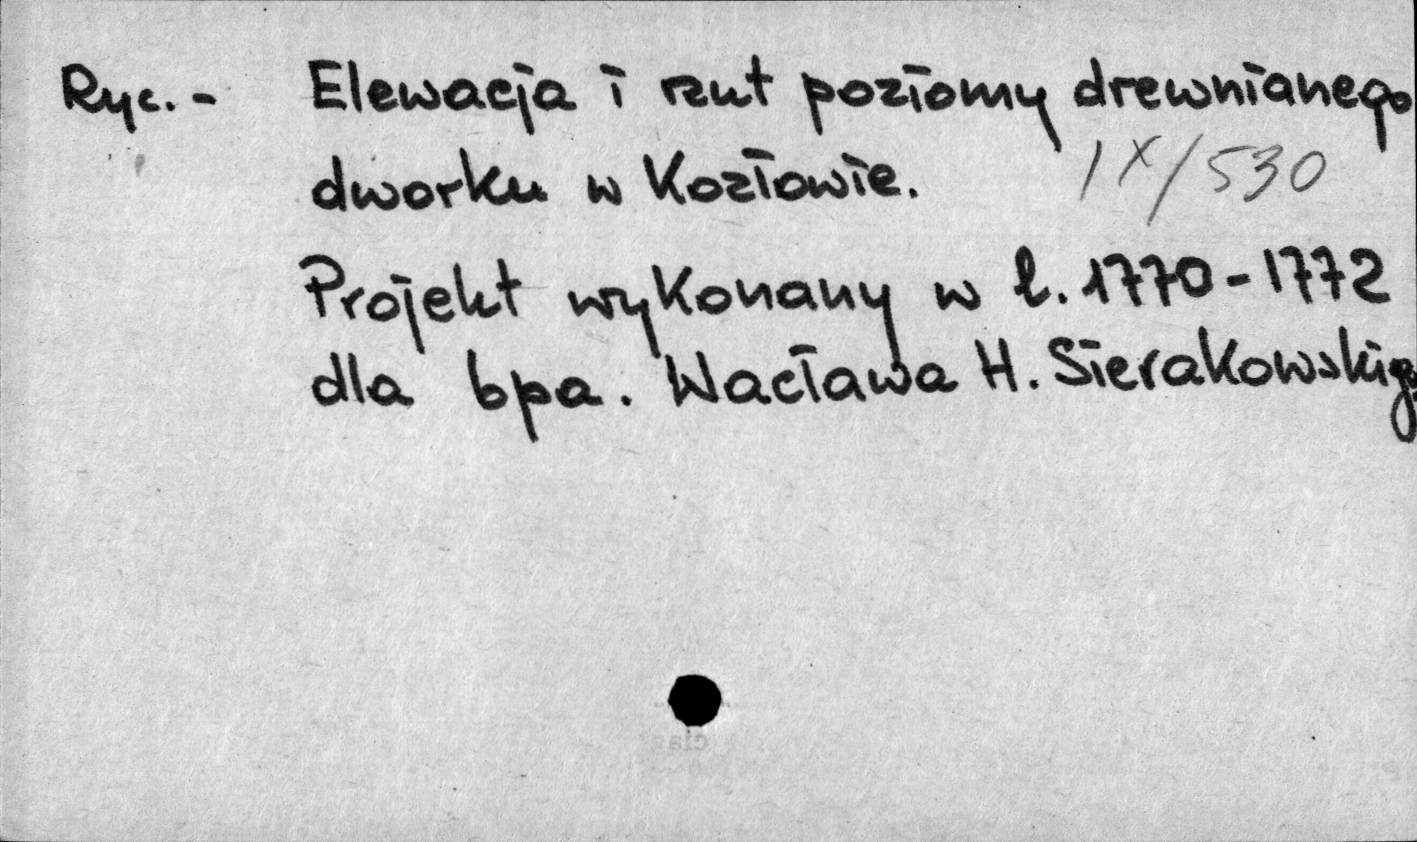 Ryc. - Elewacja i rzut poziomy drewnianego
dworku w Kozłowie. IX/530
Projekt wykonany w l. 1770-1772
dla bpa. Wacława H. Sierakowskieg